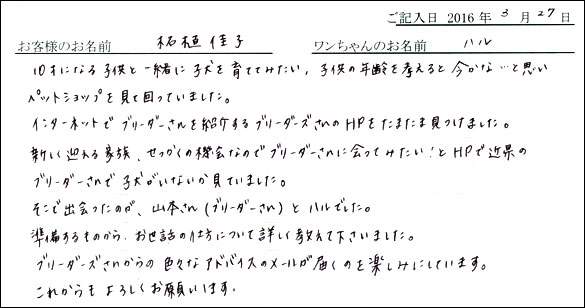 ご記入日 2016 年 3 月 27 日
お客様のお名前 柘植佳子 ワンちゃんのお名前 ハル
10才になる子供と一緒に子犬を育ててみたい、子供の年齢を考えると今かな…と思い
ペットショップを見て回っていました。
インターネットでブリーダーさんを紹介するブリーダーズさんのHPをたまたま見つけました。
新しく迎える家族、せっかくの機会なのでブリーダーさんに会ってみたい!とHPで近県の
ブリーダーさんで子犬がいないか見ていました。
そこで出会ったのが、山本さん(ブリーダーさん)とハルでした。
準備するものから、お世話の仕方について詳しく教えて下さいました。
ブリーダーズさんからの色々なアドバイスのメールが届くのを楽しみにしています。
これからもよろしくお願います.